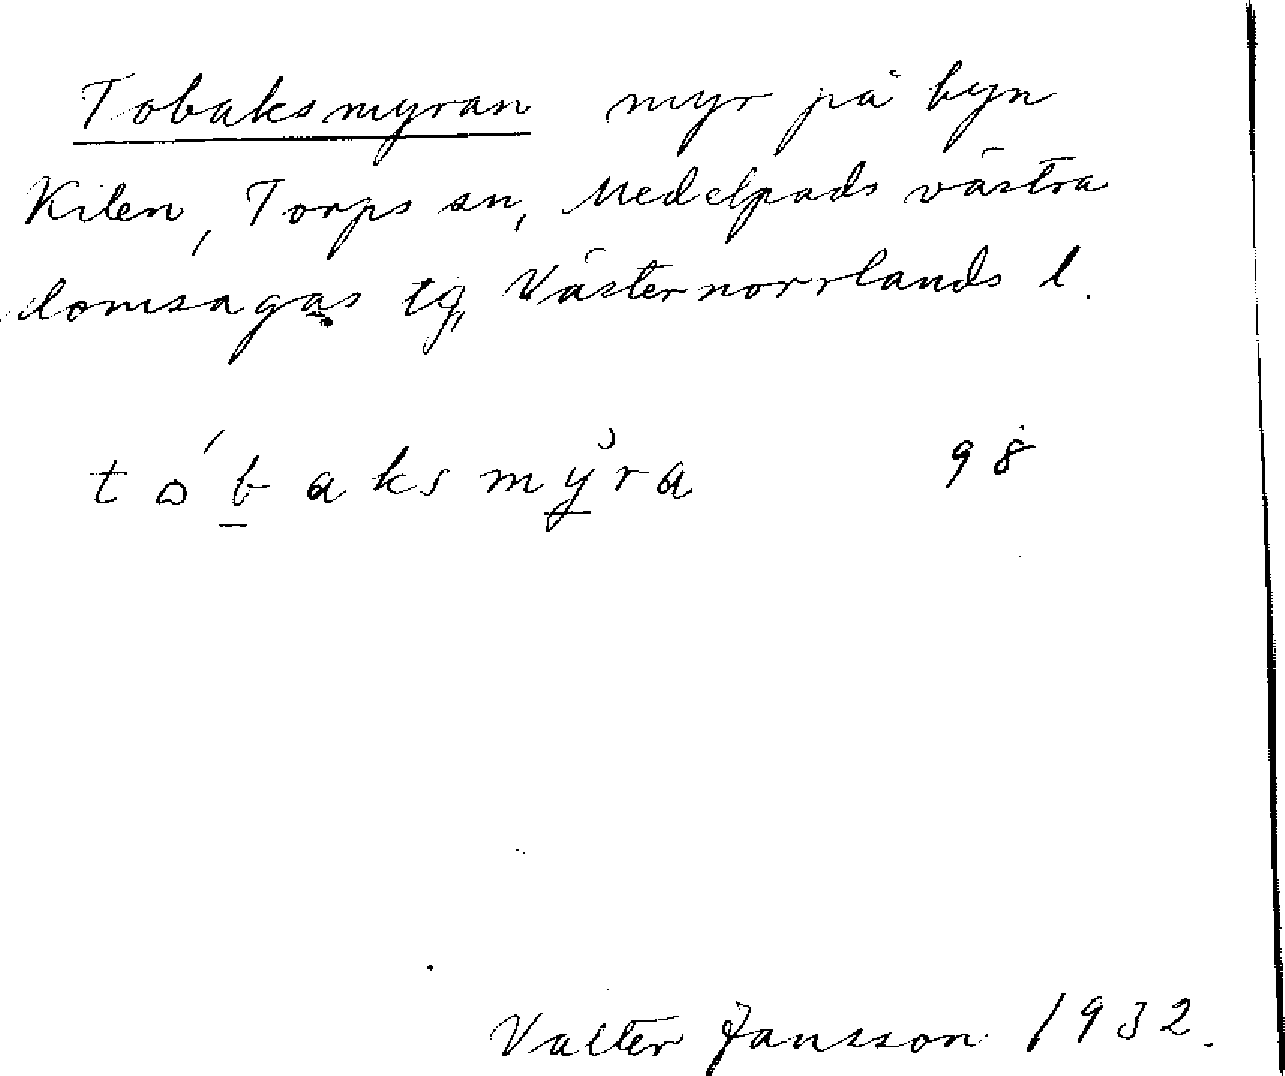 Tobaksmyran myr på byn
Kilen, Torps sn, Medelpads västra
domsagas tg, Västernorrlands l.
tobaksmyra 98
Valter Jansson 1932.